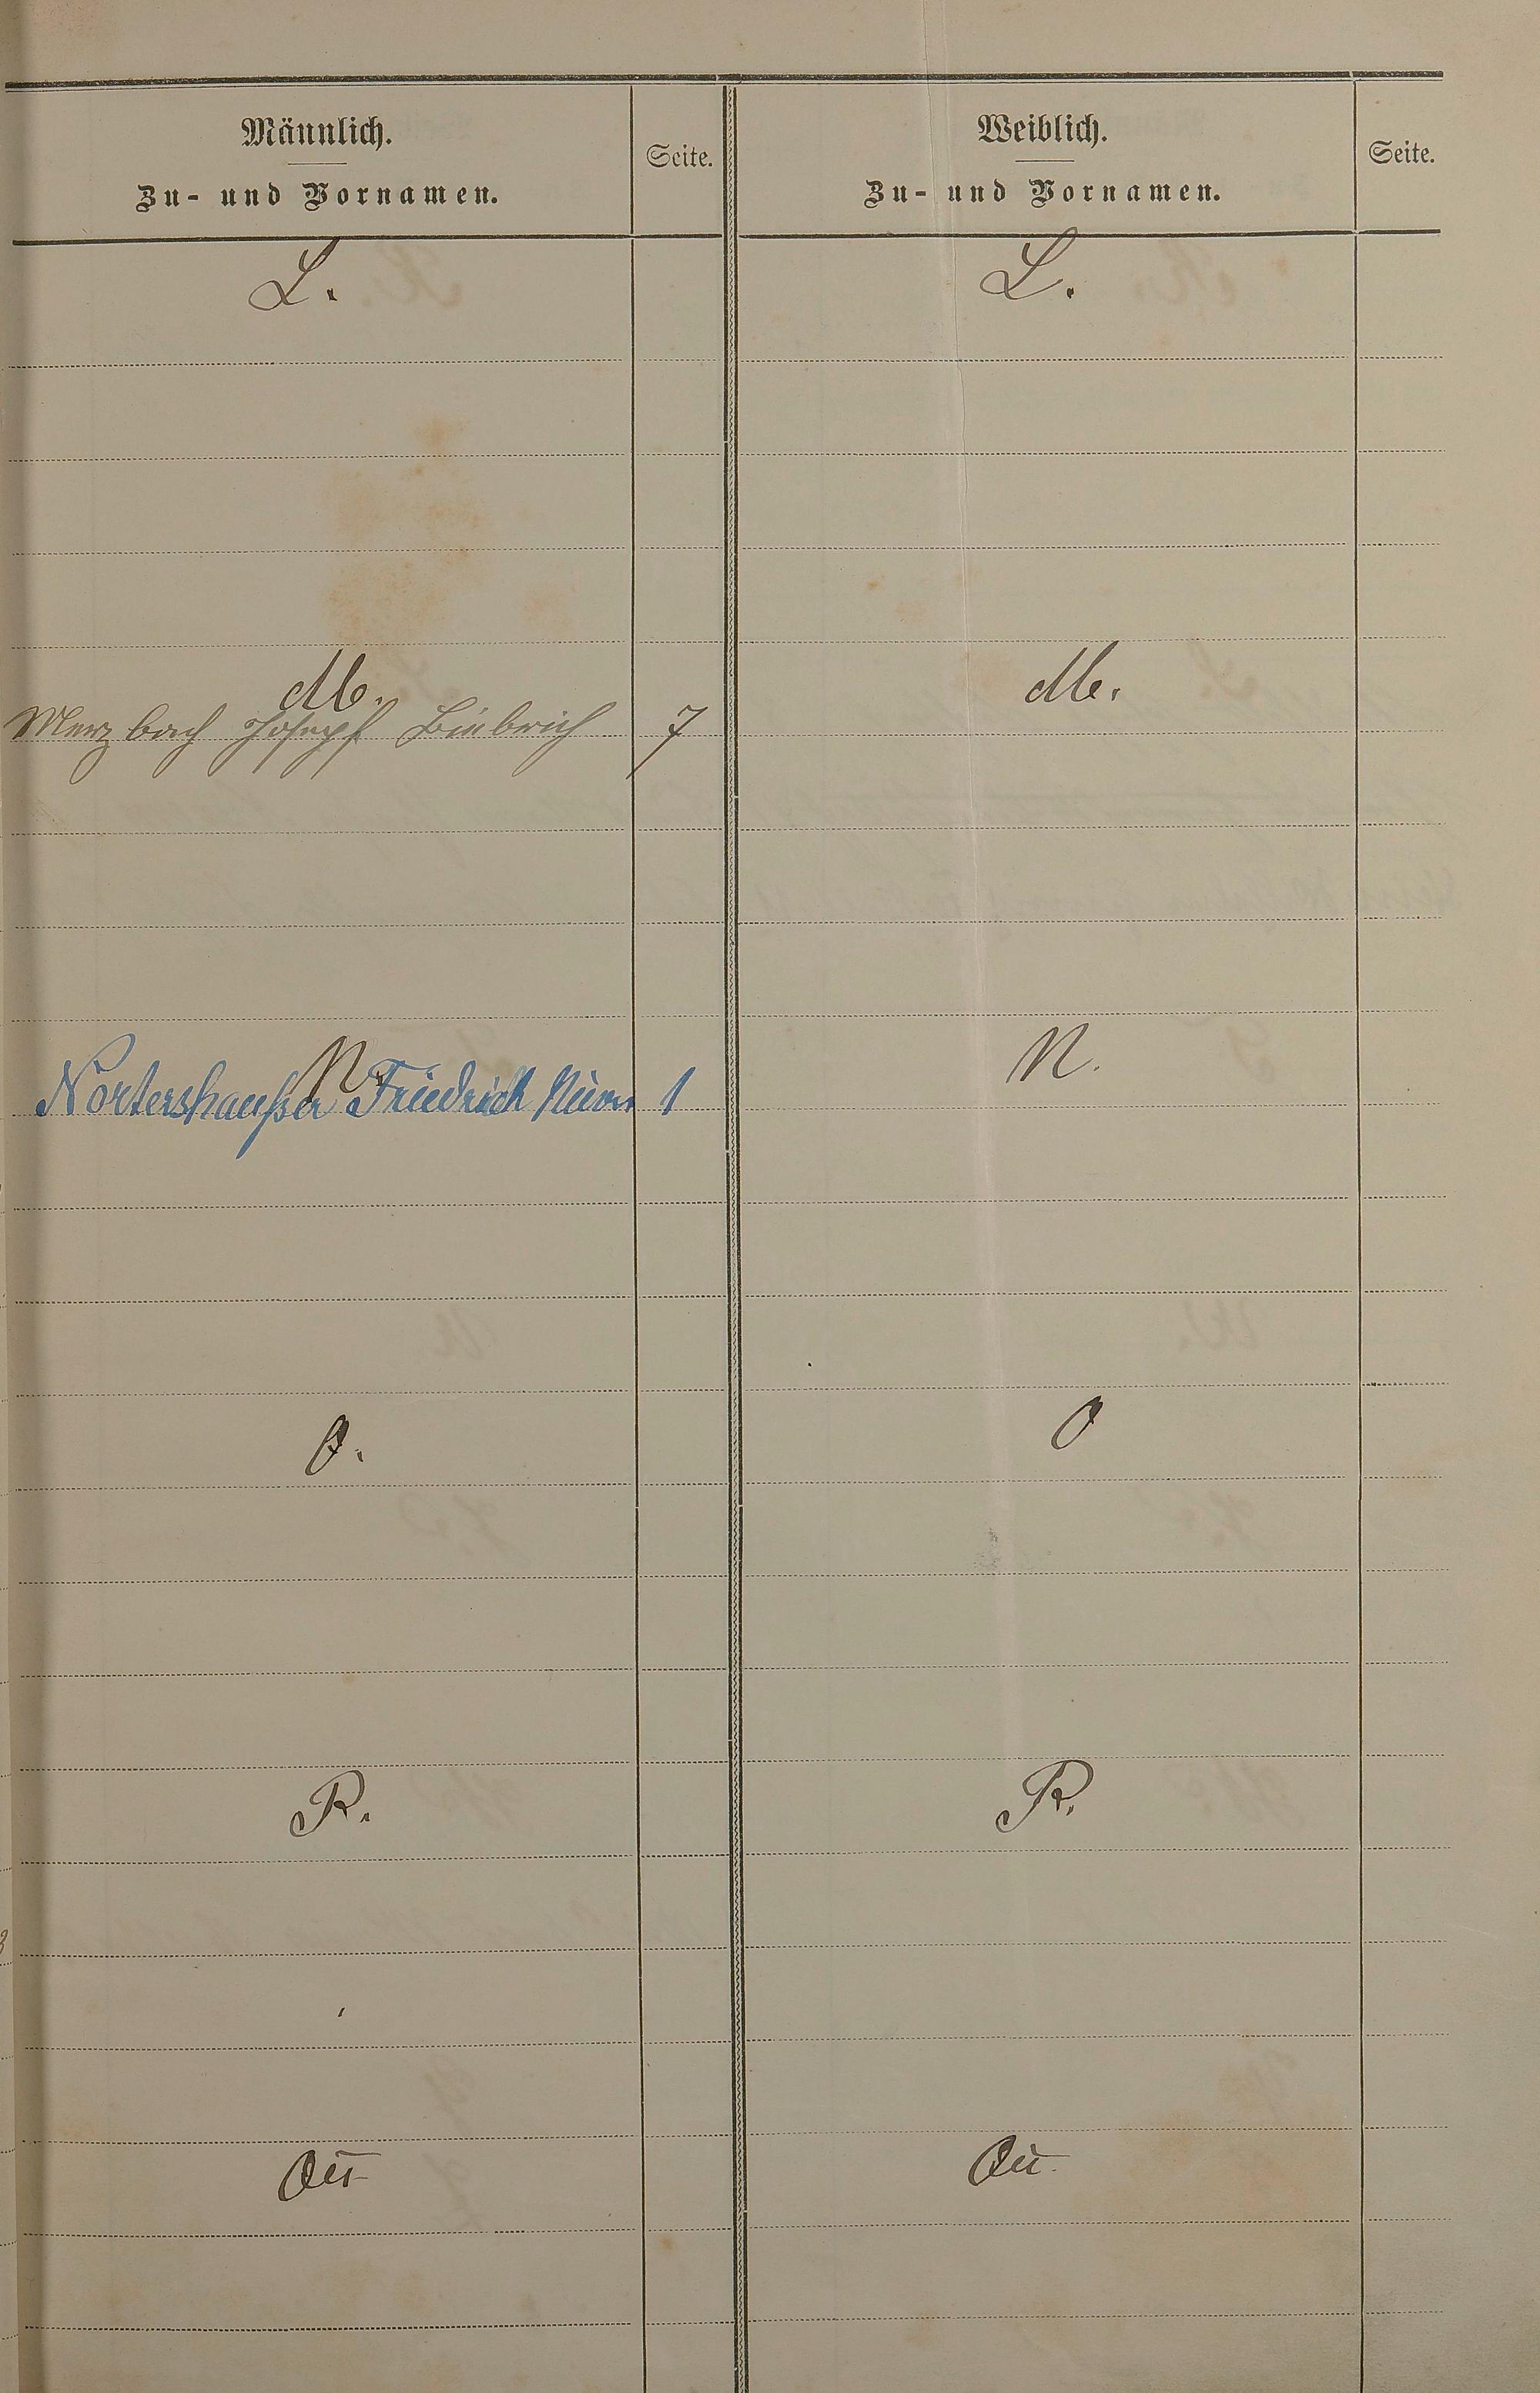 Männlich.
Zu- und Vornamen.
Seite.
Weiblich.
Zu- und Vornamen.
Seite.
L.
L.
M.
M.
Merzbach Joseph Biebrich 7
N.
N.
Nörtershaußer Friedrich 1
O.
O
R.
R.
Qu
Qu